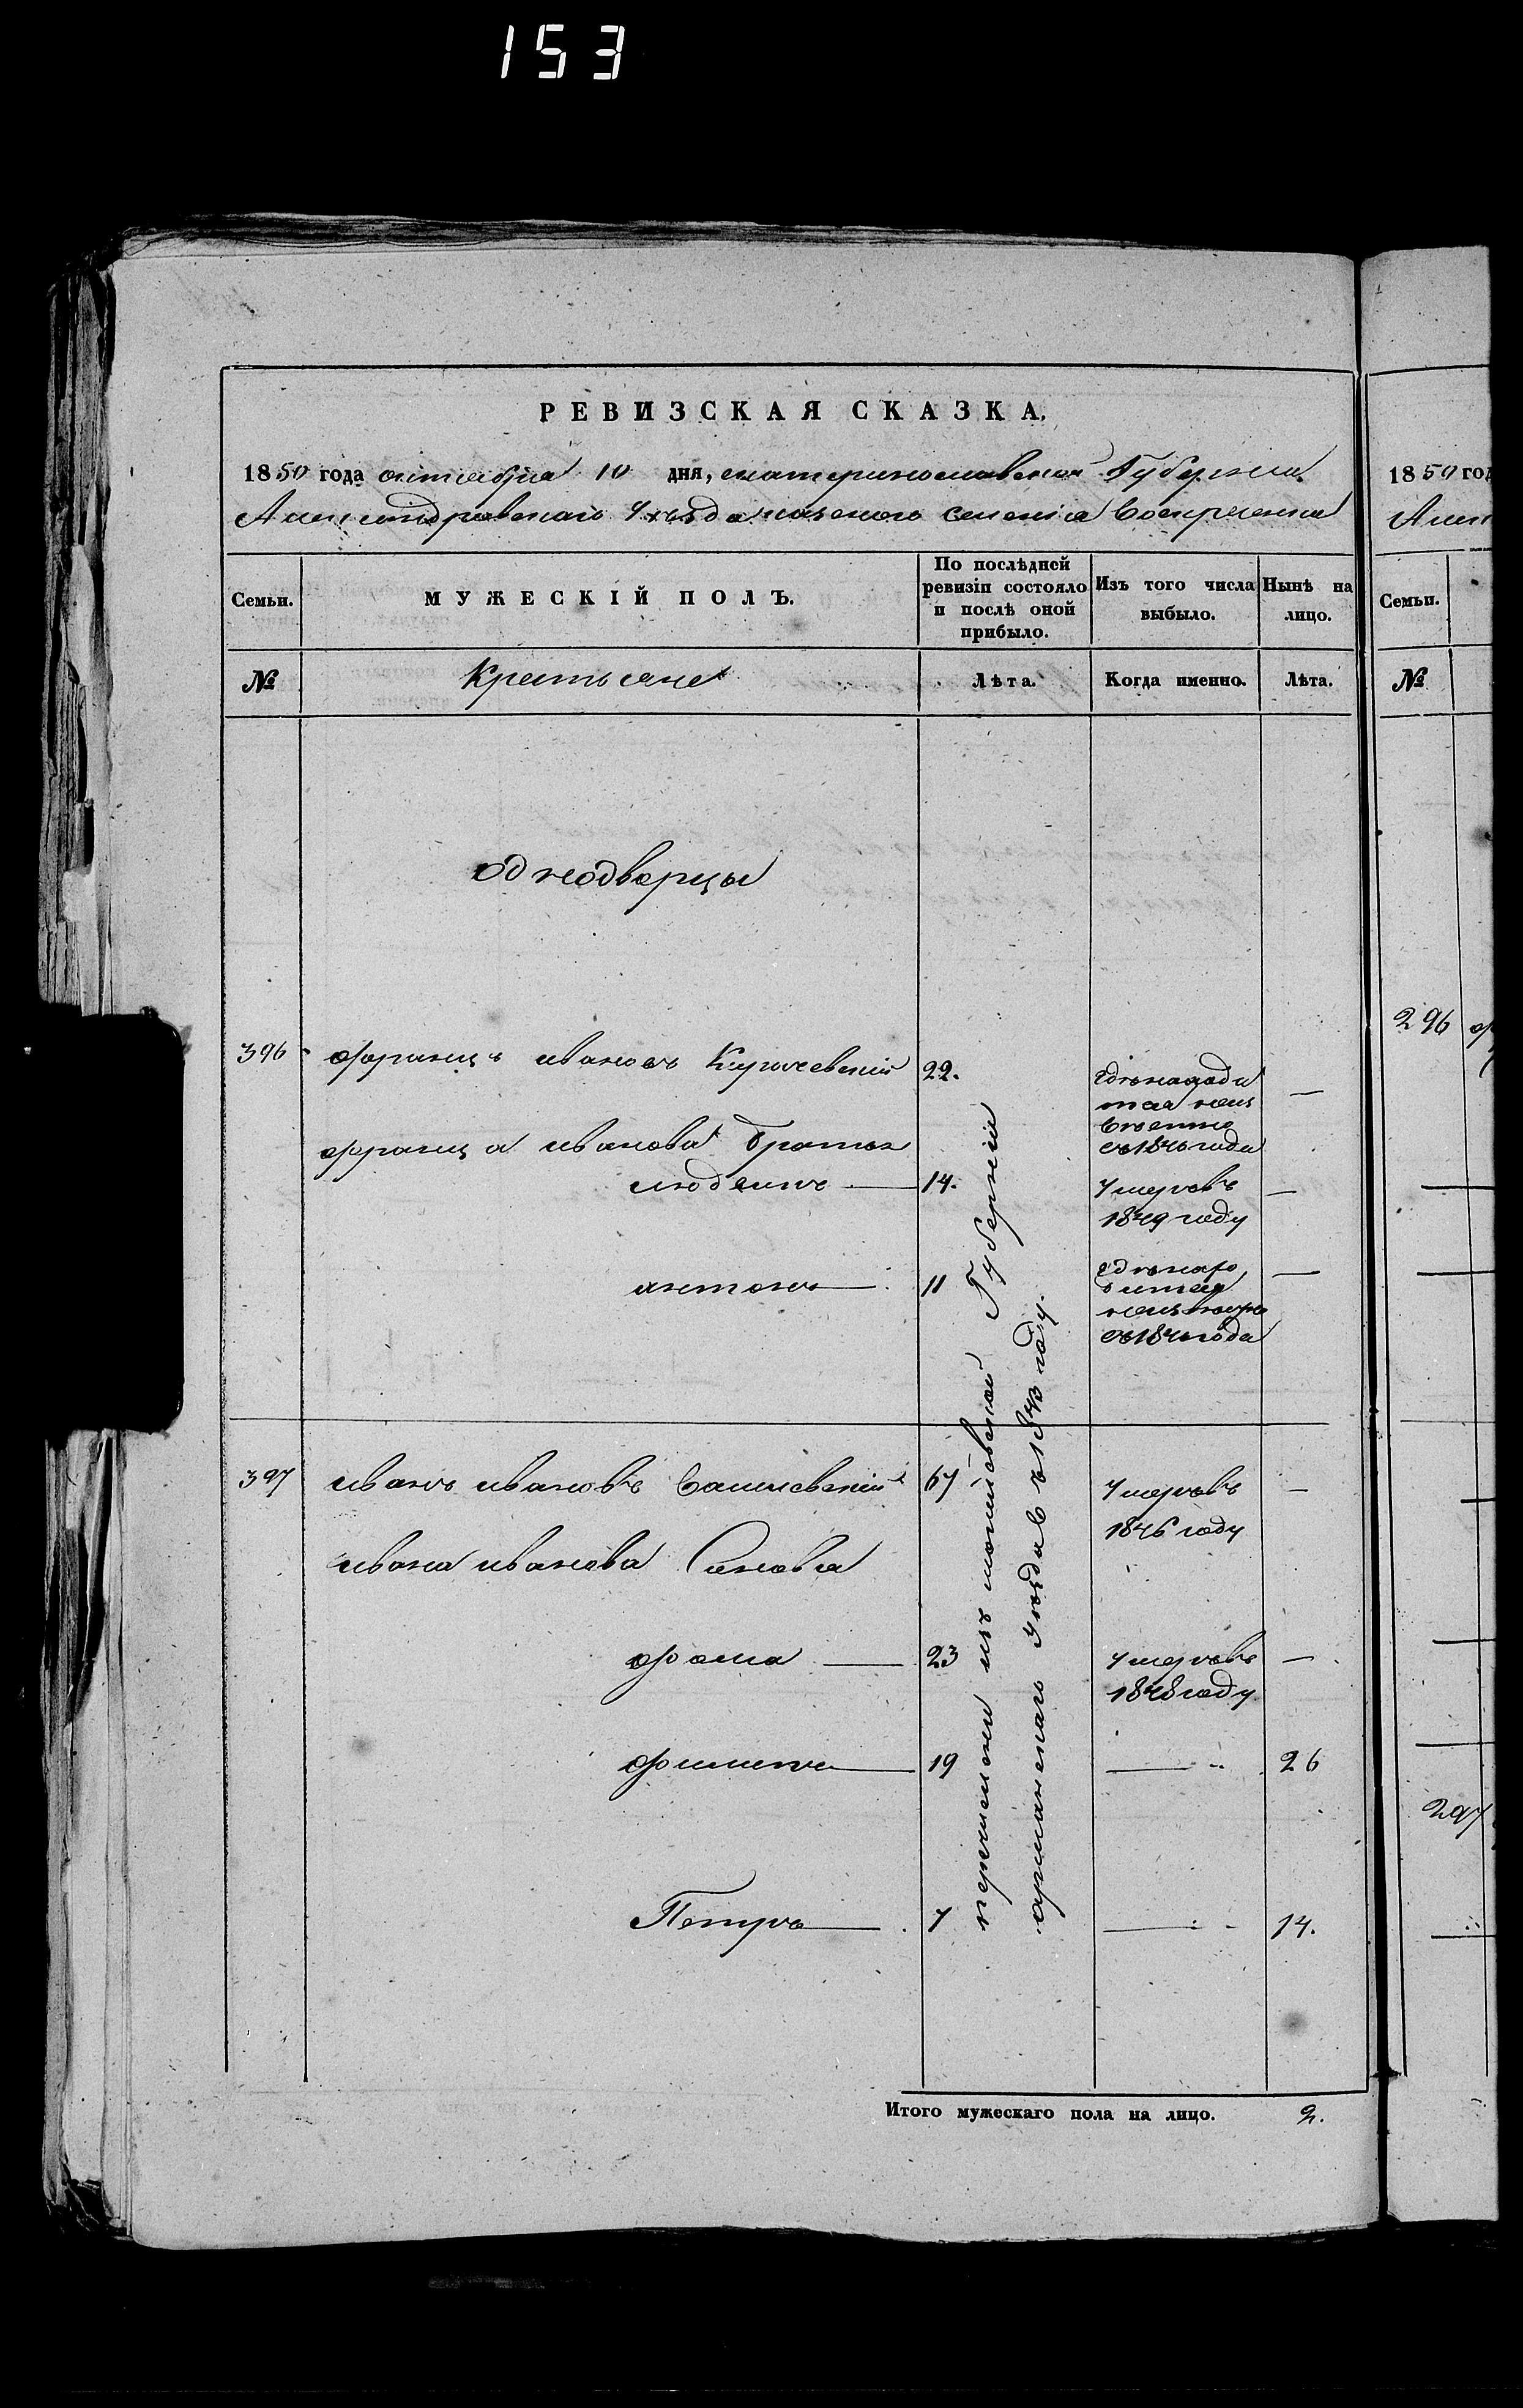 153
РЕВИЗСКАЯ СКАЗКА.
1850 года октября 10 дня, екатеринославской Губернии
Александровскаго Уезда казенного селения Воскресенка
Семьи.
МУЖЕСКІЙ ПОЛЪ.
По послѣдней ревизіи состояло и послѣ оной прибыло.
Изъ того числа выбыло.
Нынѣ на лицо.
№
Крестьяне
Лѣта.
Когда именно.
Лѣта.
однодворцы
396 францъ ивановъ 22. —
франца иванова братья
съ 1846 года
14. умеръ въ —
1849 году
антонъ — 11 —
съ 1846 года
397 иванъ ивановъ 67 умеръ въ —
1846 году
ивана иванова Сыновья
фома — 23 умеръ въ —
1848 году
филипъ — 19 — 26
Петръ — 7 — 14.
перечислены изъ могилевской Губерніи
оршанскаго уѣзда въ 1843 году.
Итого мужескаго пола на лицо. 2.
1850 год
Семьи.
№
296
297